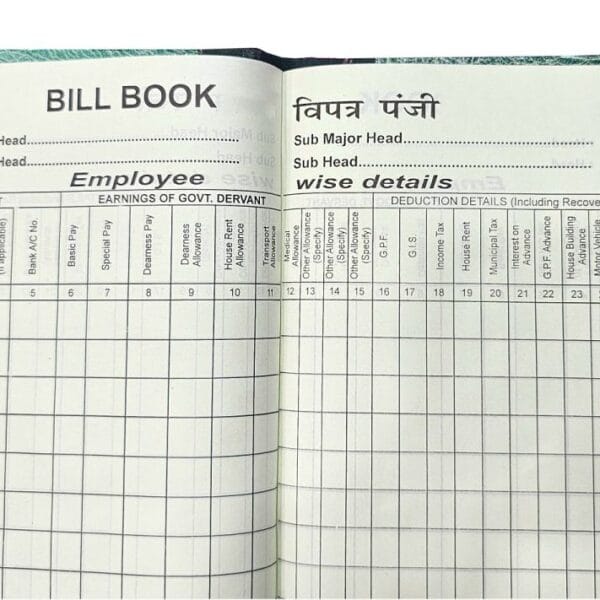 BILL BOOK
Head
Head
Employee
EARNINGS OF GOVT. DERVANT
applicable)
Bank A/C No.
Basic Pay
Special Pay
Dearness Pay
Dearness Allowance
House Rent Allowance
Transport Allowance
5 6 7 8 9 10 11
विपत्र पंजी
Sub Major Head
Sub Head
wise details
DEDUCTION DETAILS (Including Recove
Medical Allowance
Other Allowance (Specify)
Other Allowance (Specify)
Other Allowance (Specify)
G.P.F.
G.I.S.
Income Tax
House Rent
Municipal Tax
Interest on Advance
G.P.F. Advance
House Building Advance
Motor Vehicle
12 13 14 15 16 17 18 19 20 21 22 23